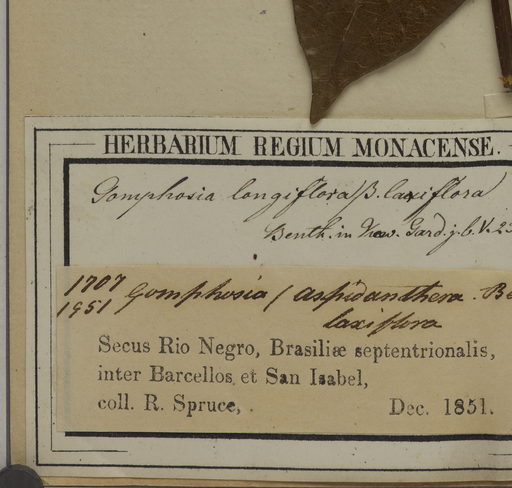 HERBARIUM REGIUM MONACENSE.
Gomphosia longiflora β. laxiflora
Benth. in Kew. Gard. j. b. V. 23
1707 Gomphosia / aspidanthera. Be
1951 laxiflora
Secus Rio Negro, Brasiliæ septentrionalis,
inter Barcellos et San Isabel,
coll. R. Spruce, . Dec. 1851.